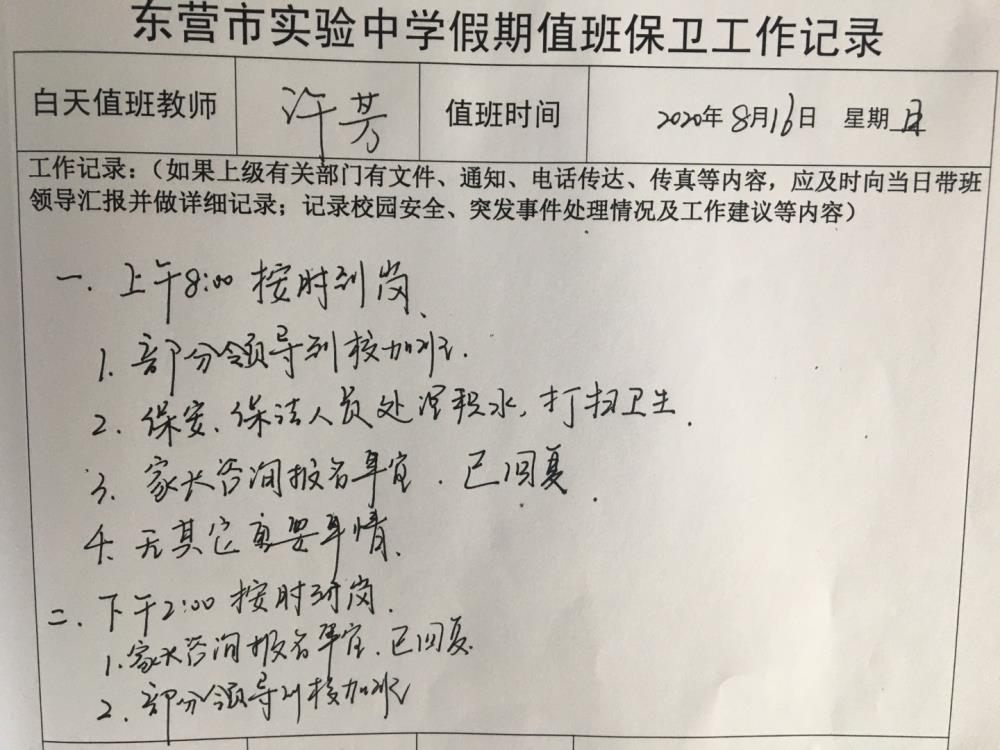 东营市实验中学假期值班保卫工作记录
白天值班教师 许芳 值班时间 2020年8月16日 星期日
工作记录：（如果上级有关部门有文件、通知、电话传达、传真等内容，应及时向当日带班
领导汇报并做详细记录；记录校园安全、突发事件处理情况及工作建议等内容）
一. 上午8:00 按时到岗、
1. 部分领导到校加班.
2. 保安、保洁人员处理积水, 打扫卫生.
3. 家长咨询报名事宜. 已回复.
4. 无其它重要事情、
二. 下午2:00 按时到岗.
1. 家长咨询报名事宜、已回复.
2. 部分领导到校加班